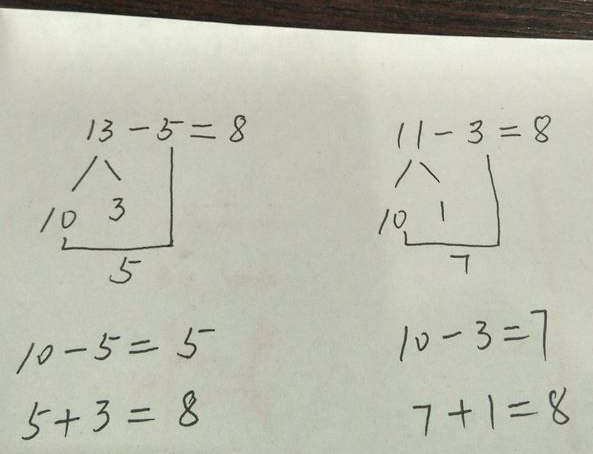 13-5=8
10 3
5
10-5=5
5+3=8
11-3=8
10 1
7
10-3=7
7+1=8